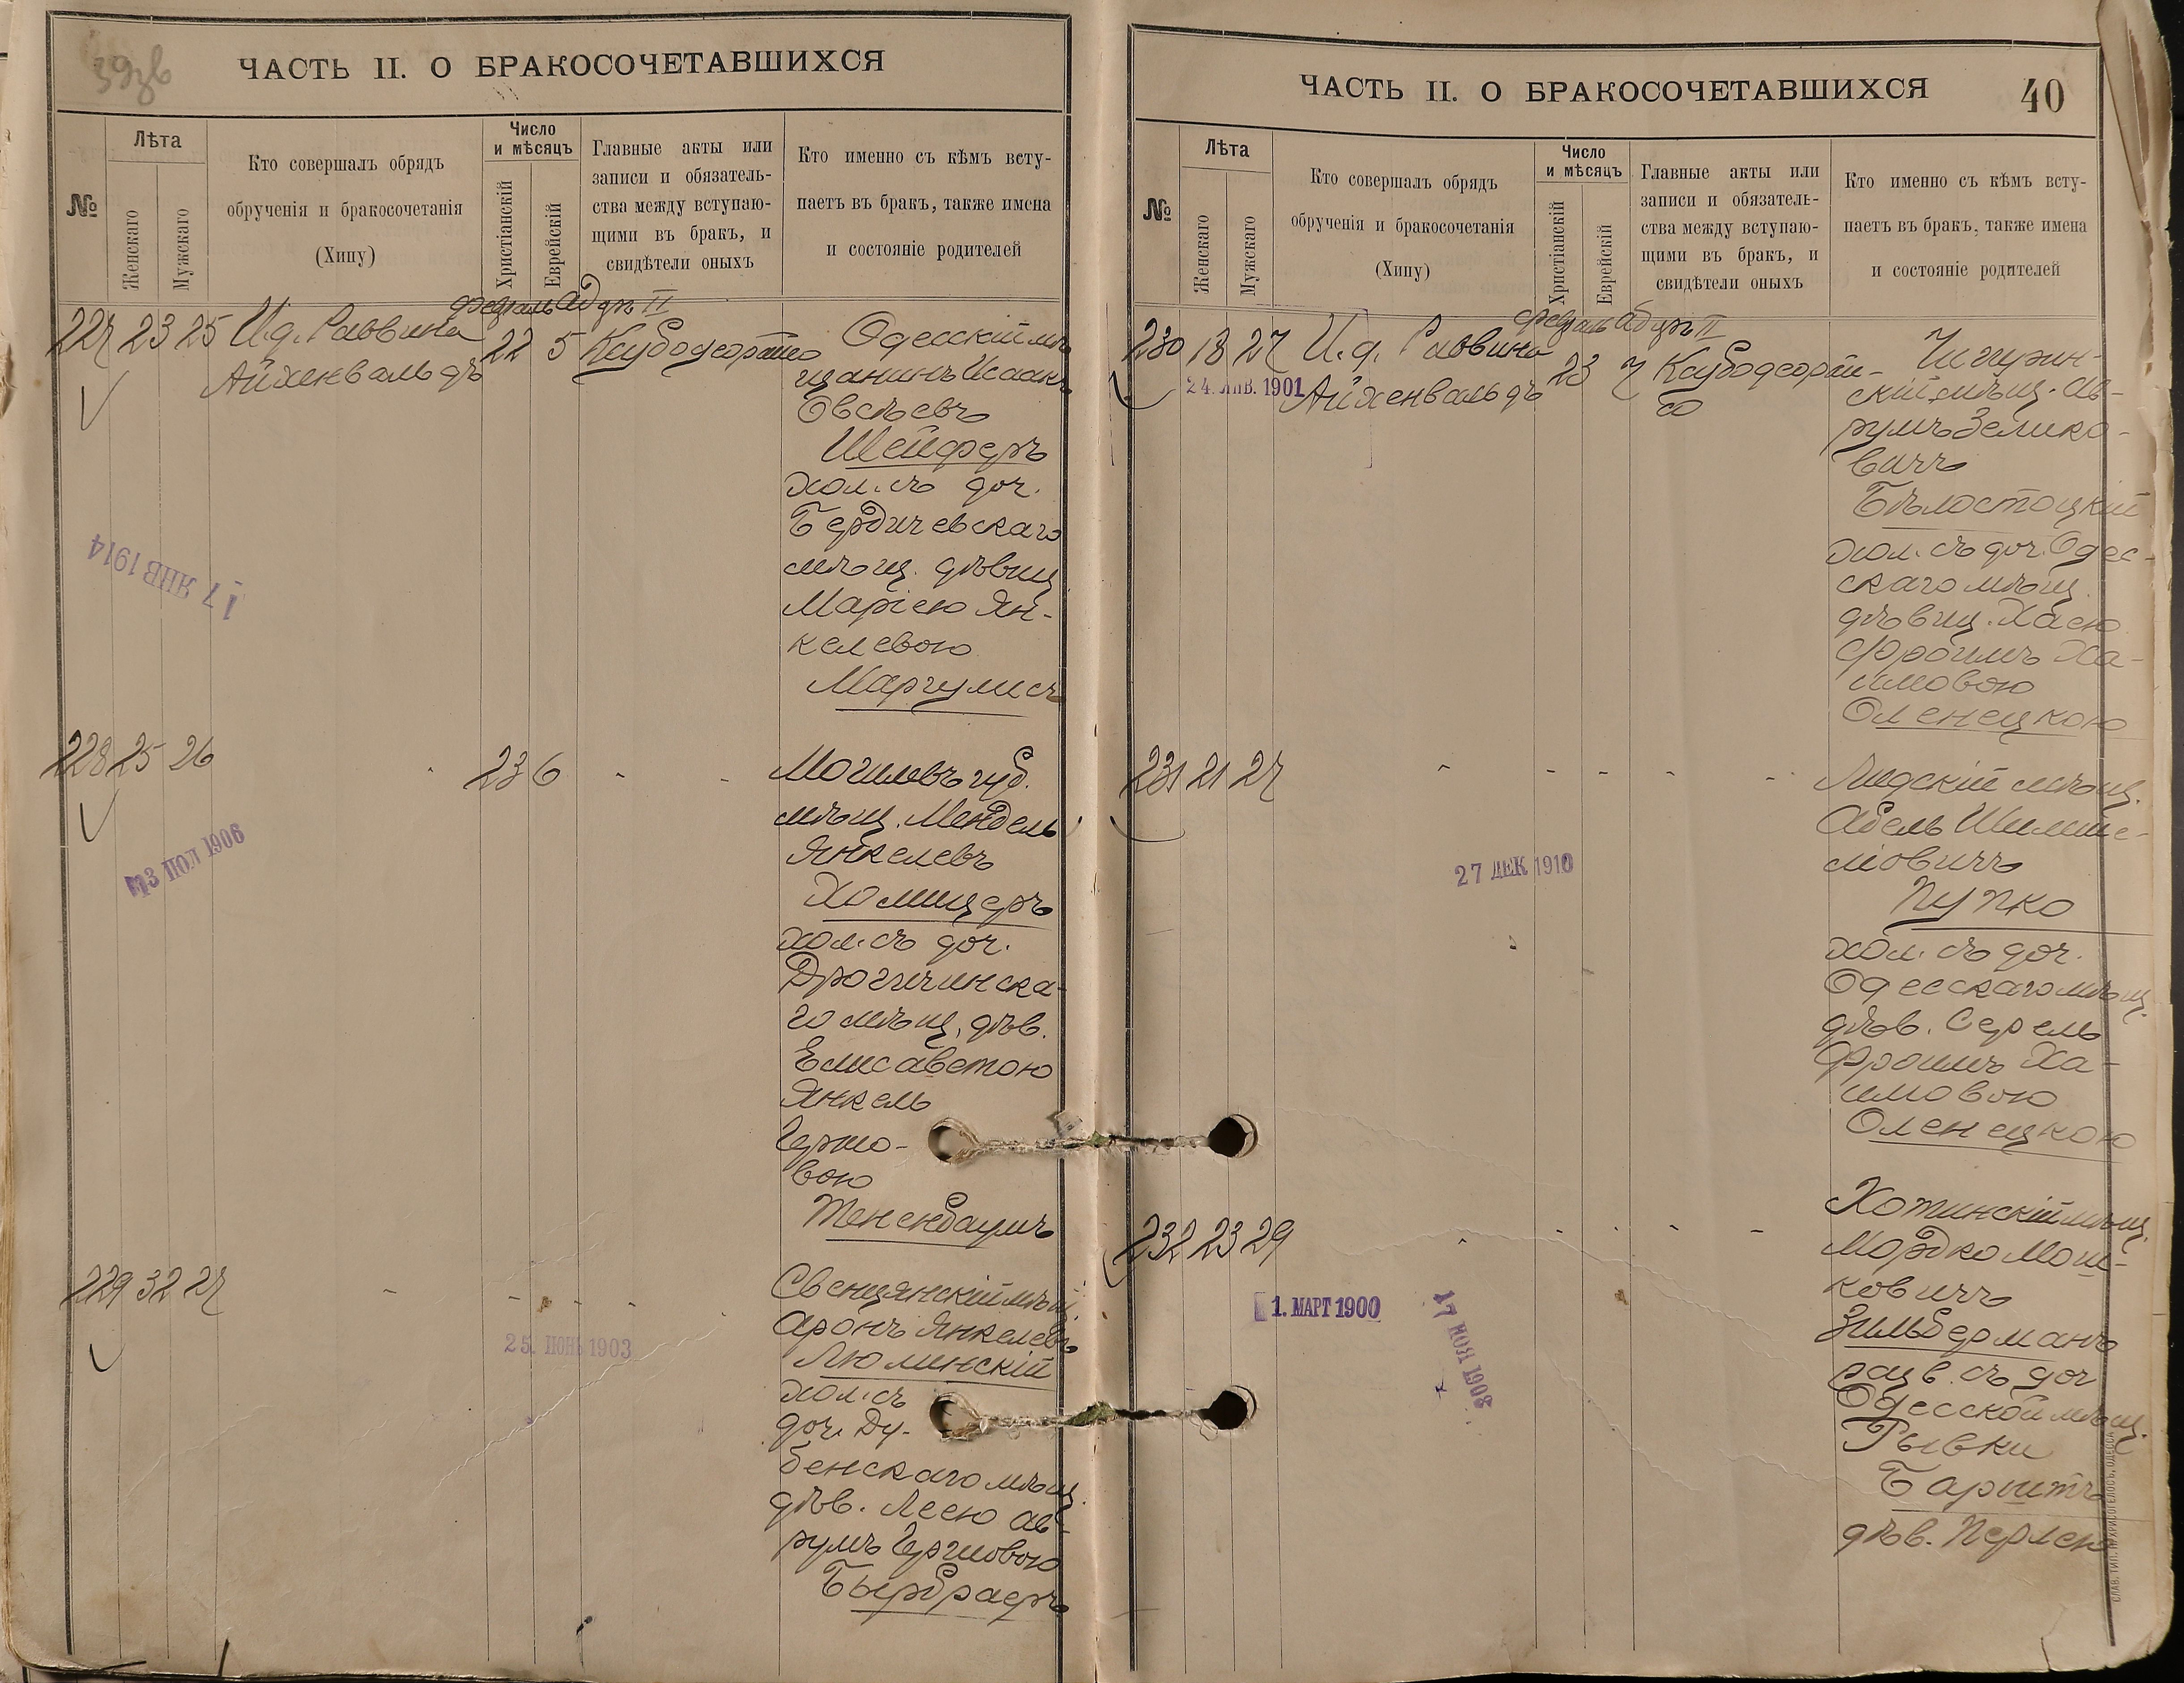 39зв
ЧАСТЬ II. О БРАКОСОЧЕТАВШИХСЯ
№
Лѣта
Женскаго
Мужскаго
Кто совершалъ обрядъ
обрученія и бракосочетанія
(Хипу)
Число
и мѣсяцъ
Христіанскій
Еврейскій
Главные акты или
записи и обязатель-
ства между вступаю-
щими въ бракъ, и
свидѣтели оныхъ
Кто именно съ кѣмъ всту-
паетъ въ бракъ, также имена
и состояніе родителей
февраль Адаръ II
227 23 25 И.д. Раввина
Айхенвальдъ
22 5 Ксубодеорайсо
Одесскій мѣ-
щанинъ Исаакъ
Овсѣевъ
Шейферъ
хол. съ доч.
Бердичевскаго
мѣщ. дѣвиц
Маріею Ян-
келевою
Маргулисъ
17 ЯНВ 1914
228 25 26 23 6
Могилевъ губ.
мѣщ. Мендель
Янкелевъ
Холмщеръ
хол. съ доч.
Дрогичинска-
го мѣщ. дѣв.
Елисаветою
Янкель
Гершо-
вою
Тененбаумъ
13 ІЮЛ 1906
229 32 27
Свенцянскій мѣщ
Аронъ Янкелевъ
Люминскій
хол. съ
доч. Ду-
бенскаго мѣщ.
дѣв. Леею Ав-
румъ Гершовою
Бырбраеръ
25. ІЮНЬ 1903
ЧАСТЬ II. О БРАКОСОЧЕТАВШИХСЯ
40
№
Лѣта
Женскаго
Мужскаго
Кто совершалъ обрядъ
обрученія и бракосочетанія
(Хипу)
Число
и мѣсяцъ
Христіанскій
Еврейскій
Главные акты или
записи и обязатель-
ства между вступаю-
щими въ бракъ, и
свидѣтели оныхъ
Кто именно съ кѣмъ всту-
паетъ въ бракъ, также имена
и состояніе родителей
февраль Адаръ II
230 18 27 И.д. Раввина
Айхенвальдъ
24. ЯНВ. 1901
23 7 Ксубодеорай-
со
Чигирин-
скій мѣщ. Ав-
румъ Зелико-
вичъ
Бѣлостоцкій
хол. съ доч. Одес-
скаго мѣщ.
дѣвиц. Хаею
Фроимъ Ха-
имовою
Оленецкою
231 21 27
Лидскій мѣщ.
Абель Шлиме-
ліовичъ
Пупко
хол. съ доч.
Одесскаго мѣщ.
дѣв. Серель
Фроимъ Ха-
имовою
Оленецкою
27 ДЕК 1910
232 23 29
Хотинскій мѣщ.
Мордко Мош-
ковичъ
Зильберманъ
разв. съ доч
Одесской мѣщ.
Рывки
Барштъ
дѣв. Перлею
1. МАРТ 1900
17 НОЯ 1908
СЛАВ. ТИП. Н. ХРИСОГЕЛОСЪ, ОДЕССА